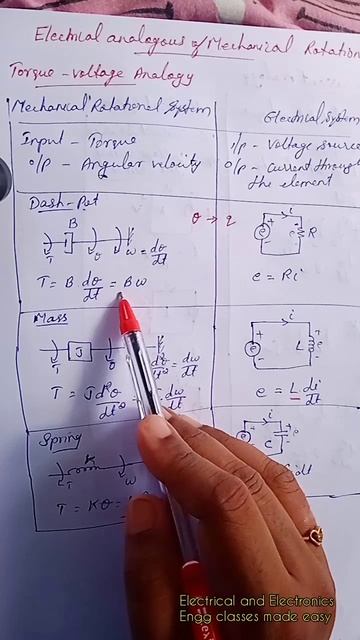 Electrical analogous of Mechanical Rotation
Torque - voltage Analogy
Mechanical Rotational System
Electrical System
Input - Torque
o/p - Angular velocity
i/p - Voltage source
o/p - Current through
the element
Dash-Pot
B
T
θ
ω = dθ/dt
T = B dθ/dt = Bω
θ → q
i
e
R
e = Ri
Mass
J
T
dω/dt
T = J d²θ/dt²
dω/dt
i
e
L
e = L di/dt
Spring
K
T
ω
T = Kθ =
i
e
C
Electrical and Electronics
Engg classes made easy